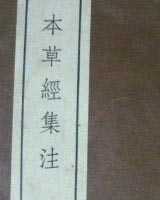 本草經集注